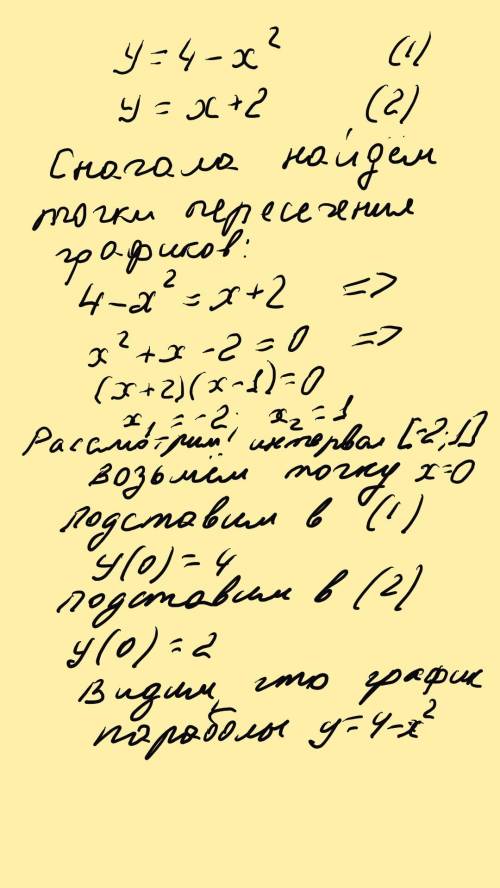 y = 4 - x² (1)
y = x + 2 (2)
Сначала найдём
точки пересечения
графиков:
4 - x² = x + 2 =>
x² + x - 2 = 0 =>
(x+2)(x-1)=0
x₁ = -2; x₂ = 1
Рассмотрим интервал [-2;1]
возьмём точку x=0
подставим в (1)
y(0) = 4
подставим в (2)
y(0) = 2
Видим, что график
параболы y=4-x²